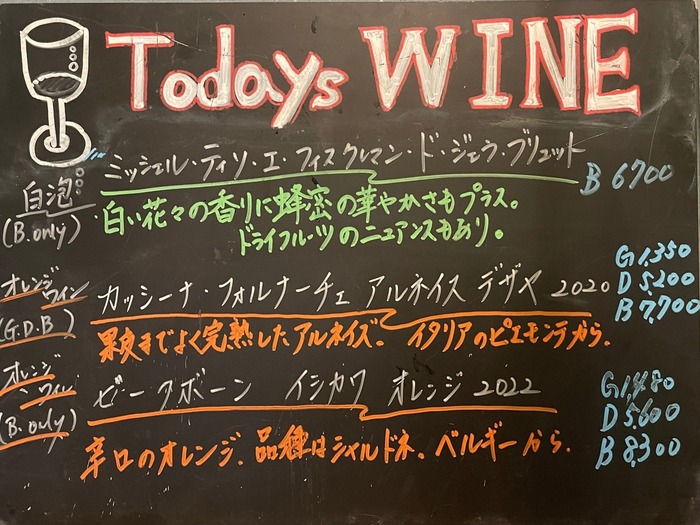 Todays WINE
ミッシェル・ティソ・エ・フィス クレマン・ド・ジュラ・ブリュット
白泡
(B.only)
B 6700
白い花々の香りに蜂蜜の華やかさもプラス。
ドライフルーツのニュアンスもあり。
オレンジ
ワイン
(G.D.B)
カッシーナ・フォルナーチェ アルネイス デザヤ 2020
G 1,350
D 5,200
B 7,700
果皮までよく完熟したアルネイズ。 イタリアのピエモンテから.
オレンジ
ワイン
(B.only)
ビークボーン イシカワ オレンジ 2022
G 1,480
D 5,600
B 8,300
辛口のオレンジ. 品種はシャルドネ、ベルギーから.